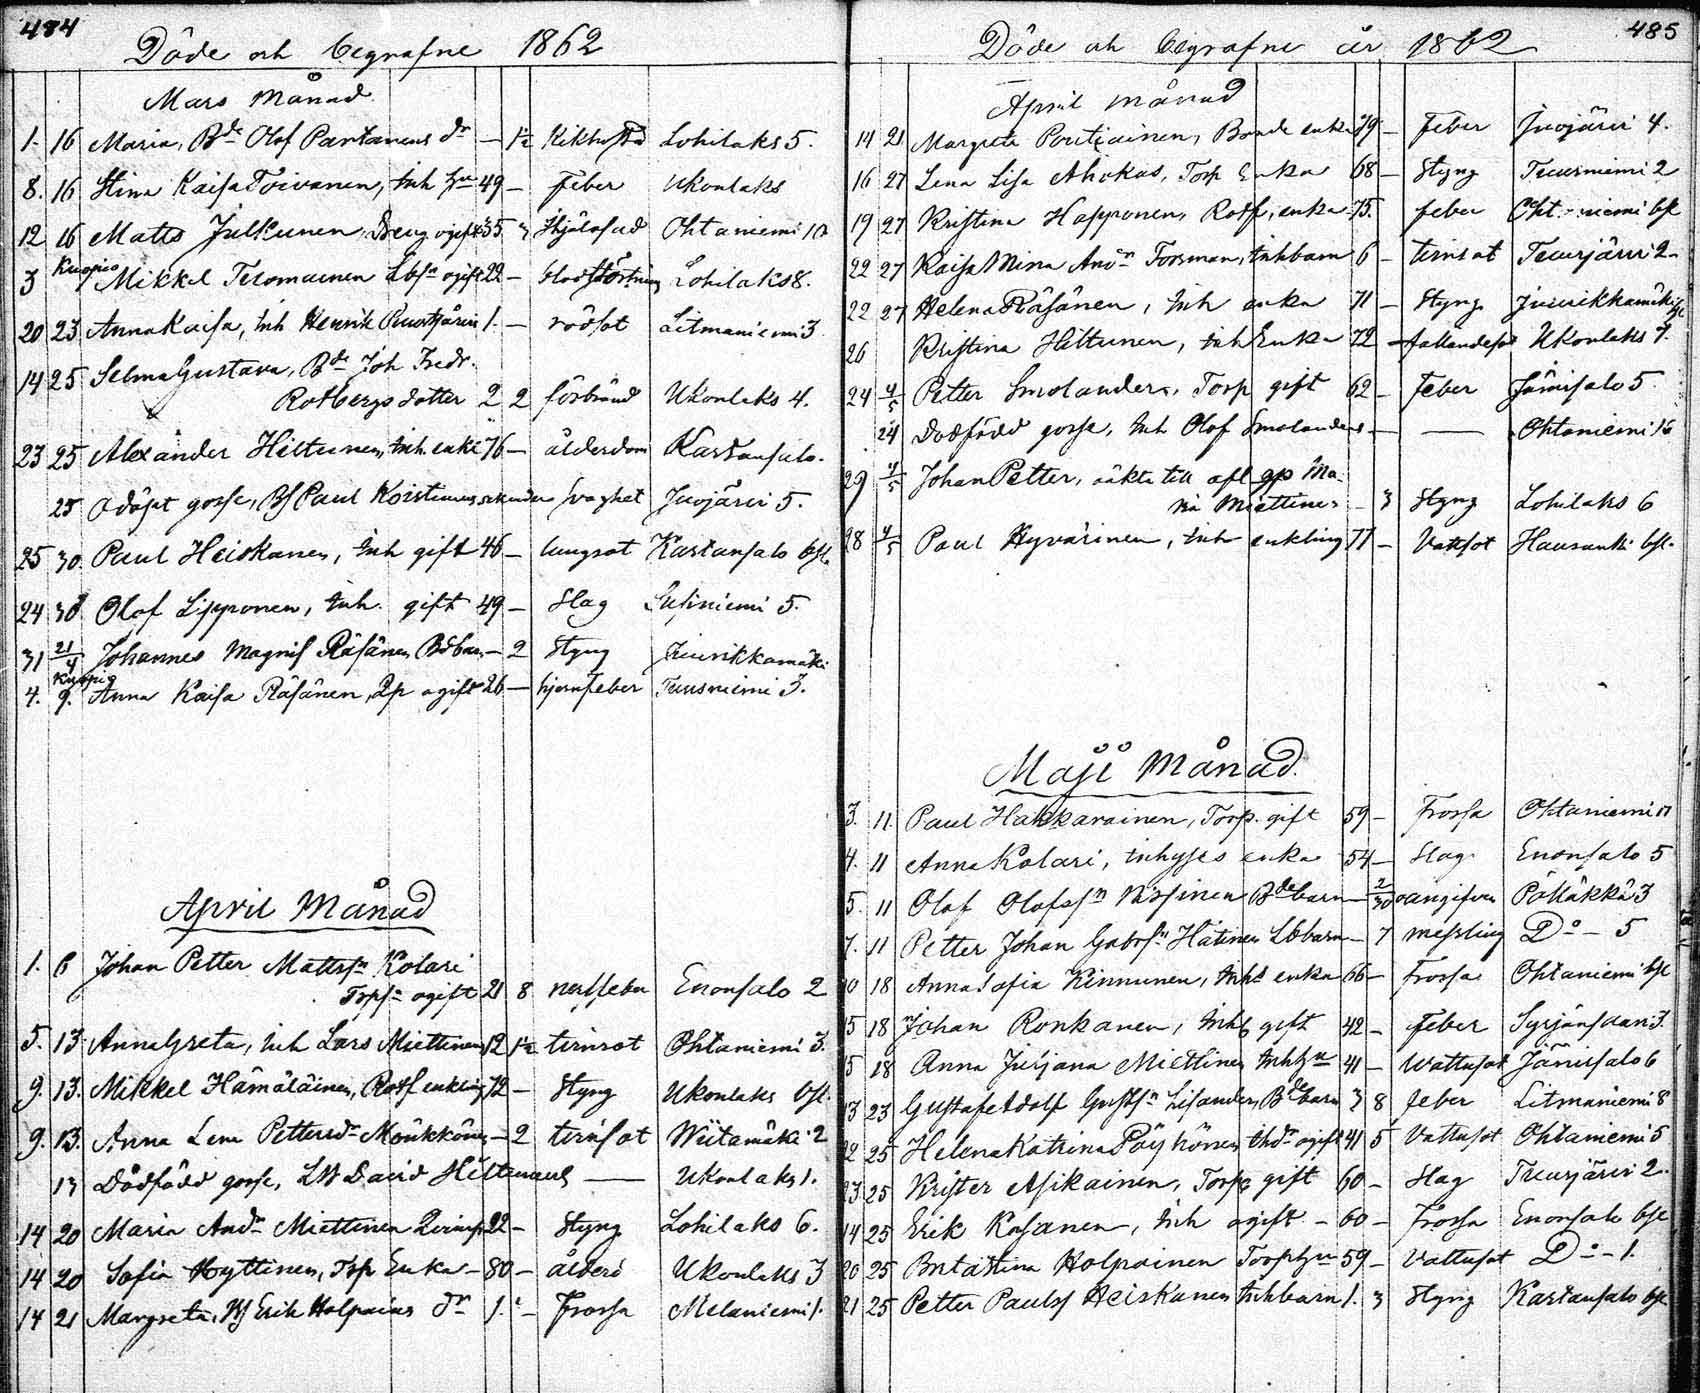 484
Döde och begrafne 1862
Mars Månad
1. 16 Maria, Bde Olof Partanens dr — 1½ Kikhosta Lohilaks 5.
8. 16 Stina Kaisa Toivanen, Inh hu 49 — Feber Ukonlaks
12 16 Matts Julkunen, Dreng ogift 35 Ihjälslad Ohtaniemi 10
3 Kuopio Mikkel Teromainen Lbsn ogift 22 — Lohilaks 8.
20 23 Anna Kaisa, Inh Henrik 1. — rödsot Litmaniemi 3
14 25 Selma Gustava, Bde Joh Fredr.
Rotbergs dotter 2 2 förbränd Ukonlaks 4.
23 25 Alexander Hiltunen, Inh. enkl 76 — ålderdom Kartansalo.
25 Odöpt gosse, Bf Paul Koistinens svaghet Juojärvi 5.
25 30 Paul Heiskanen, Inh gift 46 — lungsot Kartansalo bfl.
24 30 Olof Lipponen, Inh. gift 49 — Slag Susiniemi 5.
31 21/4 Johannes Magnus Räsänen Bdbarn — 2 Styng Juurikkamäki
Kuopio
4. 9. Anna Kaisa Räsänen, Pp ogift 26 — hjernfeber Tuusniemi 3.
April Månad
1. 6 Johan Petter Mattsn Kolari
Torpsn ogift 21 8 nerffeber Enonsalo 2
5. 13 Anna Greta, Inh Lars Miettinens 12 1½ tvinsot Ohtaniemi 3.
9. 13. Mikkel Hämäläinen, Rotf enkling 72 — Styng Ukonlaks bfl.
9. 13. Anna Lena Pettersdr Mönkkönen — 2 tvinsot Wiitamäki 2
13 Dödfödd gosse, Lbd David Hiltunens — Ukonlaks 1.
14 20 Maria Andr Miettinen 22 — Styng Lohilaks 6.
14 20 Sofia Hyttinen, Torp Enka — 80 — ålderd Ukonlaks 3
14 21 Margreta, Bf Erik Holpainens dr 1. — Frossa Melaniemi 1.
485
Döde och begrafne år 1862
April månad
14 21 Margreta Poutiainen, Bonde enka 79 — Feber Juojärvi 4.
16 27 Lena Lisa Ahokas, Torp Enka 68 — Styng Tuusniemi 2
19 27 Kristina Happonen, Rotf, enka 75. feber Ohtaniemi bfl
22 27 Kaisa Mina Andn Forsman, Inhbarn 6 — tvinsot Tuurjärvi 2
22 27 Helena Räsänen, Inh enka 71 — Styng Juurikkamäki bfl
26 Kristina Hiltunen, Inh Enka 72 — fallandesot Ukonlaks 7.
24 4/5 Petter Smolander, Torp gift 62 — Feber Jänissalo 5
24 Dödfödd gosse, Inh Olof Smolanders — — Ohtaniemi 15
29 4/5 Johan Petter, oäkta till afl gp Ma-
ria Miettinen — 3 Styng Lohilaks 6
28 4/5 Paul Hyvärinen, Inh enkling 77 — Vattsot Hausanki bfl.
Maji Månad.
3. 11. Paul Hakkarainen, Torp. gift 59 — Frossa Ohtaniemi 17
4. 11 Anna Kolari, inhyses enka 54 — Slag Enonsalo 5
5. 11 Olof Olofssn Nissinen Bdebarn — 2/30 oangifven Pölläkkä 3
7. 11 Petter Johan Gabrsn Hätinen Lbbarn — 7 messling Do — 5
10 18 Anna Sofia Kinnunen, Inhs enka 66 — Frossa Ohtaniemi bfl
15 18 Johan Ronkanen, Inh gift 42 — Feber Syrjänsaari 3.
15 18 Anna Juliana Miettinen Inhhu 41 — Wattusot Jänissalo 6
13 23 Gustaf Adolf Gustfsn Lisander, Bdebarn 3 8 feber Litmaniemi 8
22 25 Helena Katrina Pöyhönen Inhdr ogift 41 5 Vattusot Ohtaniemi 5
23 25 Krister Asikainen, Torp gift 60 — Slag Tuurjärvi 2.
14 25 Erik Kosanen, Inh ogift — 60 — Frossa Enonsalo bfl
20 25 Brita Stina Holpainen Torphu 59 — Vattusot Do — 1.
21 25 Petter Paulsf Heiskanen Inhbarn 1. 3 Styng Kartansalo bfl